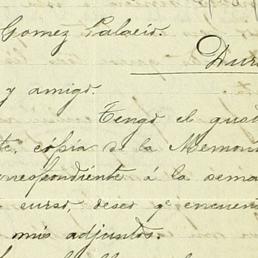 Gomez Palacio.
Dur
y amigo.
Tengo el gust
te, cópia de la Memori
orrespondiente á la sema
curso deseo qe encuen
mis adjuntos.